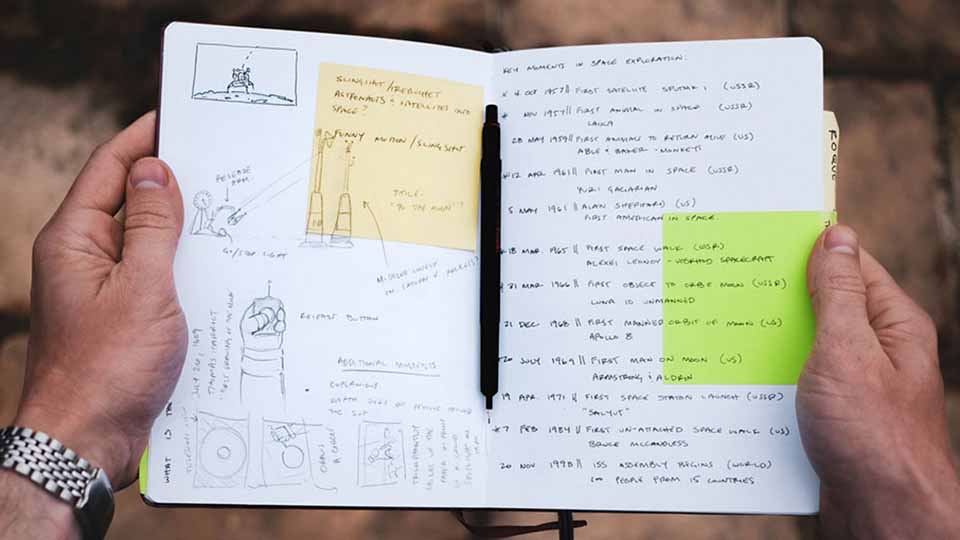 SLINGSHOT/TREBUCHET
ASTRONAUTS + SATELLITES INTO
SPACE?
FUNNY MOTION/SLINGSHOT
TITLE:
"TO THE MOON"!
RELEASE
ARM
GO/STOP LIGHT
RELEASE BUTTON
JULY 26, 1609
THOMAS HARRIOT
"FIRST DRAWING OF THE MOON"
ADDITIONAL MOMENTS
COPERNICUS
EARTH
THE SUN
WHAT IS
KEY MOMENTS IN SPACE EXPLORATION:
4 OCT 1957 // FIRST SATELLITE SPUTNIK 1 (USSR)
NOV 1957 // FIRST ANIMAL IN SPACE (USSR)
LAIKA
28 MAY 1959 // FIRST ANIMALS TO RETURN ALIVE (US)
ABLE + BAKER - MONKEYS
*12 APR 1961 // FIRST MAN IN SPACE (USSR)
YURI GAGARIAN
5 MAY 1961 // ALAN SHEPHARD (US)
FIRST AMERICAN IN SPACE.
*18 MAR. 1965 // FIRST SPACE WALK (USSR)
ALEXEI LEONOV - VOSKHOD SPACECRAFT
31 MAR 1966 // FIRST OBJECT TO ORBIT MOON (USSR)
LUNA 10 UNMANNED
21 DEC 1968 // FIRST MANNED ORBIT OF MOON (US)
APOLLO 8
*20 JULY 1969 // FIRST MAN ON MOON (US)
ARMSTRONG + ALDRIN
19 APR. 1971 // FIRST SPACE STATION LAUNCH (USSR)
"SALYUT"
*7 FEB 1984 // FIRST UN-ATTACHED SPACE WALK (US)
BRUCE MCCANDLESS
20 NOV 1998 // ISS ASSEMBLY BEGINS (WORLD)
PEOPLE FROM 15 COUNTRIES